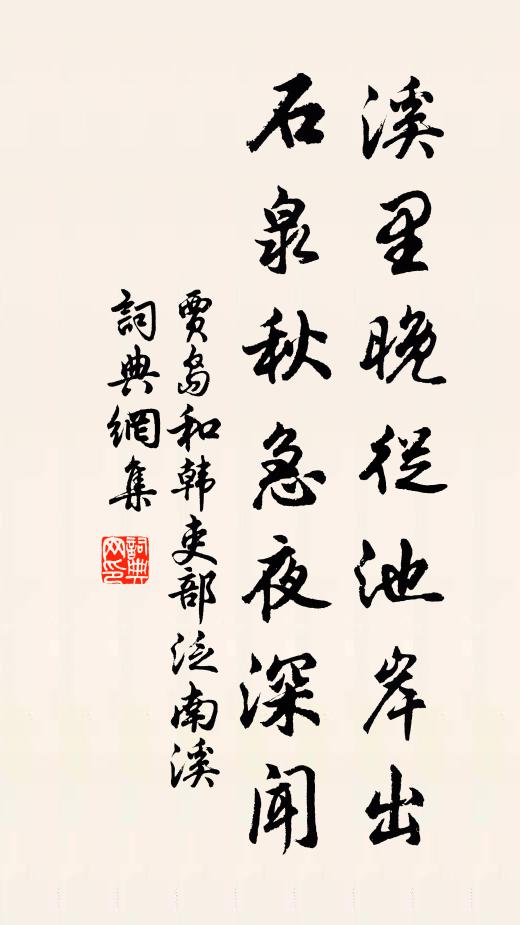 溪里晚從池岸出
石泉秋急夜深聞
賈島和韩吏部泛南溪
詞典網集
詞典
网印